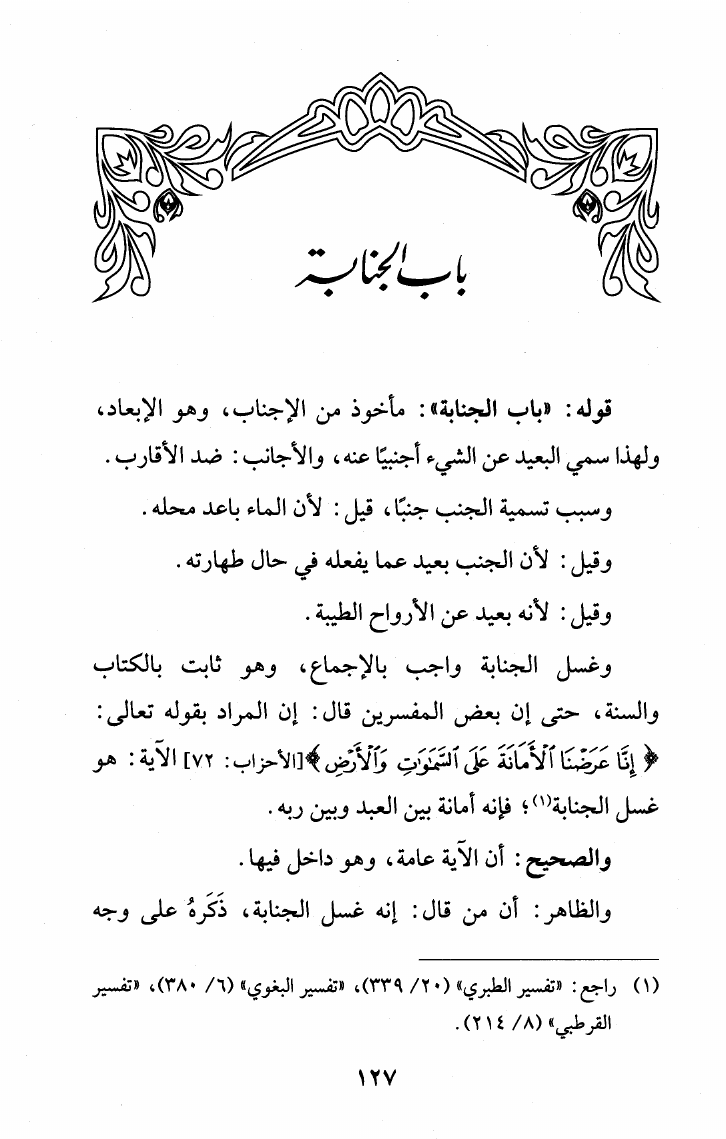 باب الجنابة
قوله: «باب الجنابة»: مأخوذ من الإجناب، وهو الإبعاد،
ولهذا سمي البعيد عن الشيء أجنبيًا عنه، والأجانب: ضد الأقارب.
وسبب تسمية الجنب جنبًا، قيل: لأن الماء باعد محله.
وقيل: لأن الجنب بعيد عما يفعله في حال طهارته.
وقيل: لأنه بعيد عن الأرواح الطيبة.
وغسل الجنابة واجب بالإجماع، وهو ثابت بالكتاب
والسنة، حتى إن بعض المفسرين قال: إن المراد بقوله تعالى:
﴿إِنَّا عَرَضْنَا ٱلْأَمَانَةَ عَلَى ٱلسَّمَٰوَٰتِ وَٱلْأَرْضِ﴾ [الأحزاب: ٧٢] الآية: هو
غسل الجنابة(١)؛ فإنه أمانة بين العبد وبين ربه.
والصحيح: أن الآية عامة، وهو داخل فيها.
والظاهر: أن من قال: إنه غسل الجنابة، ذَكَرهُ على وجه
(١) راجع: «تفسير الطبري» (٢٠/ ٣٣٩)، «تفسير البغوي» (٦/ ٣٨٠)، «تفسير
القرطبي» (٨/ ٢١٤).
١٢٧